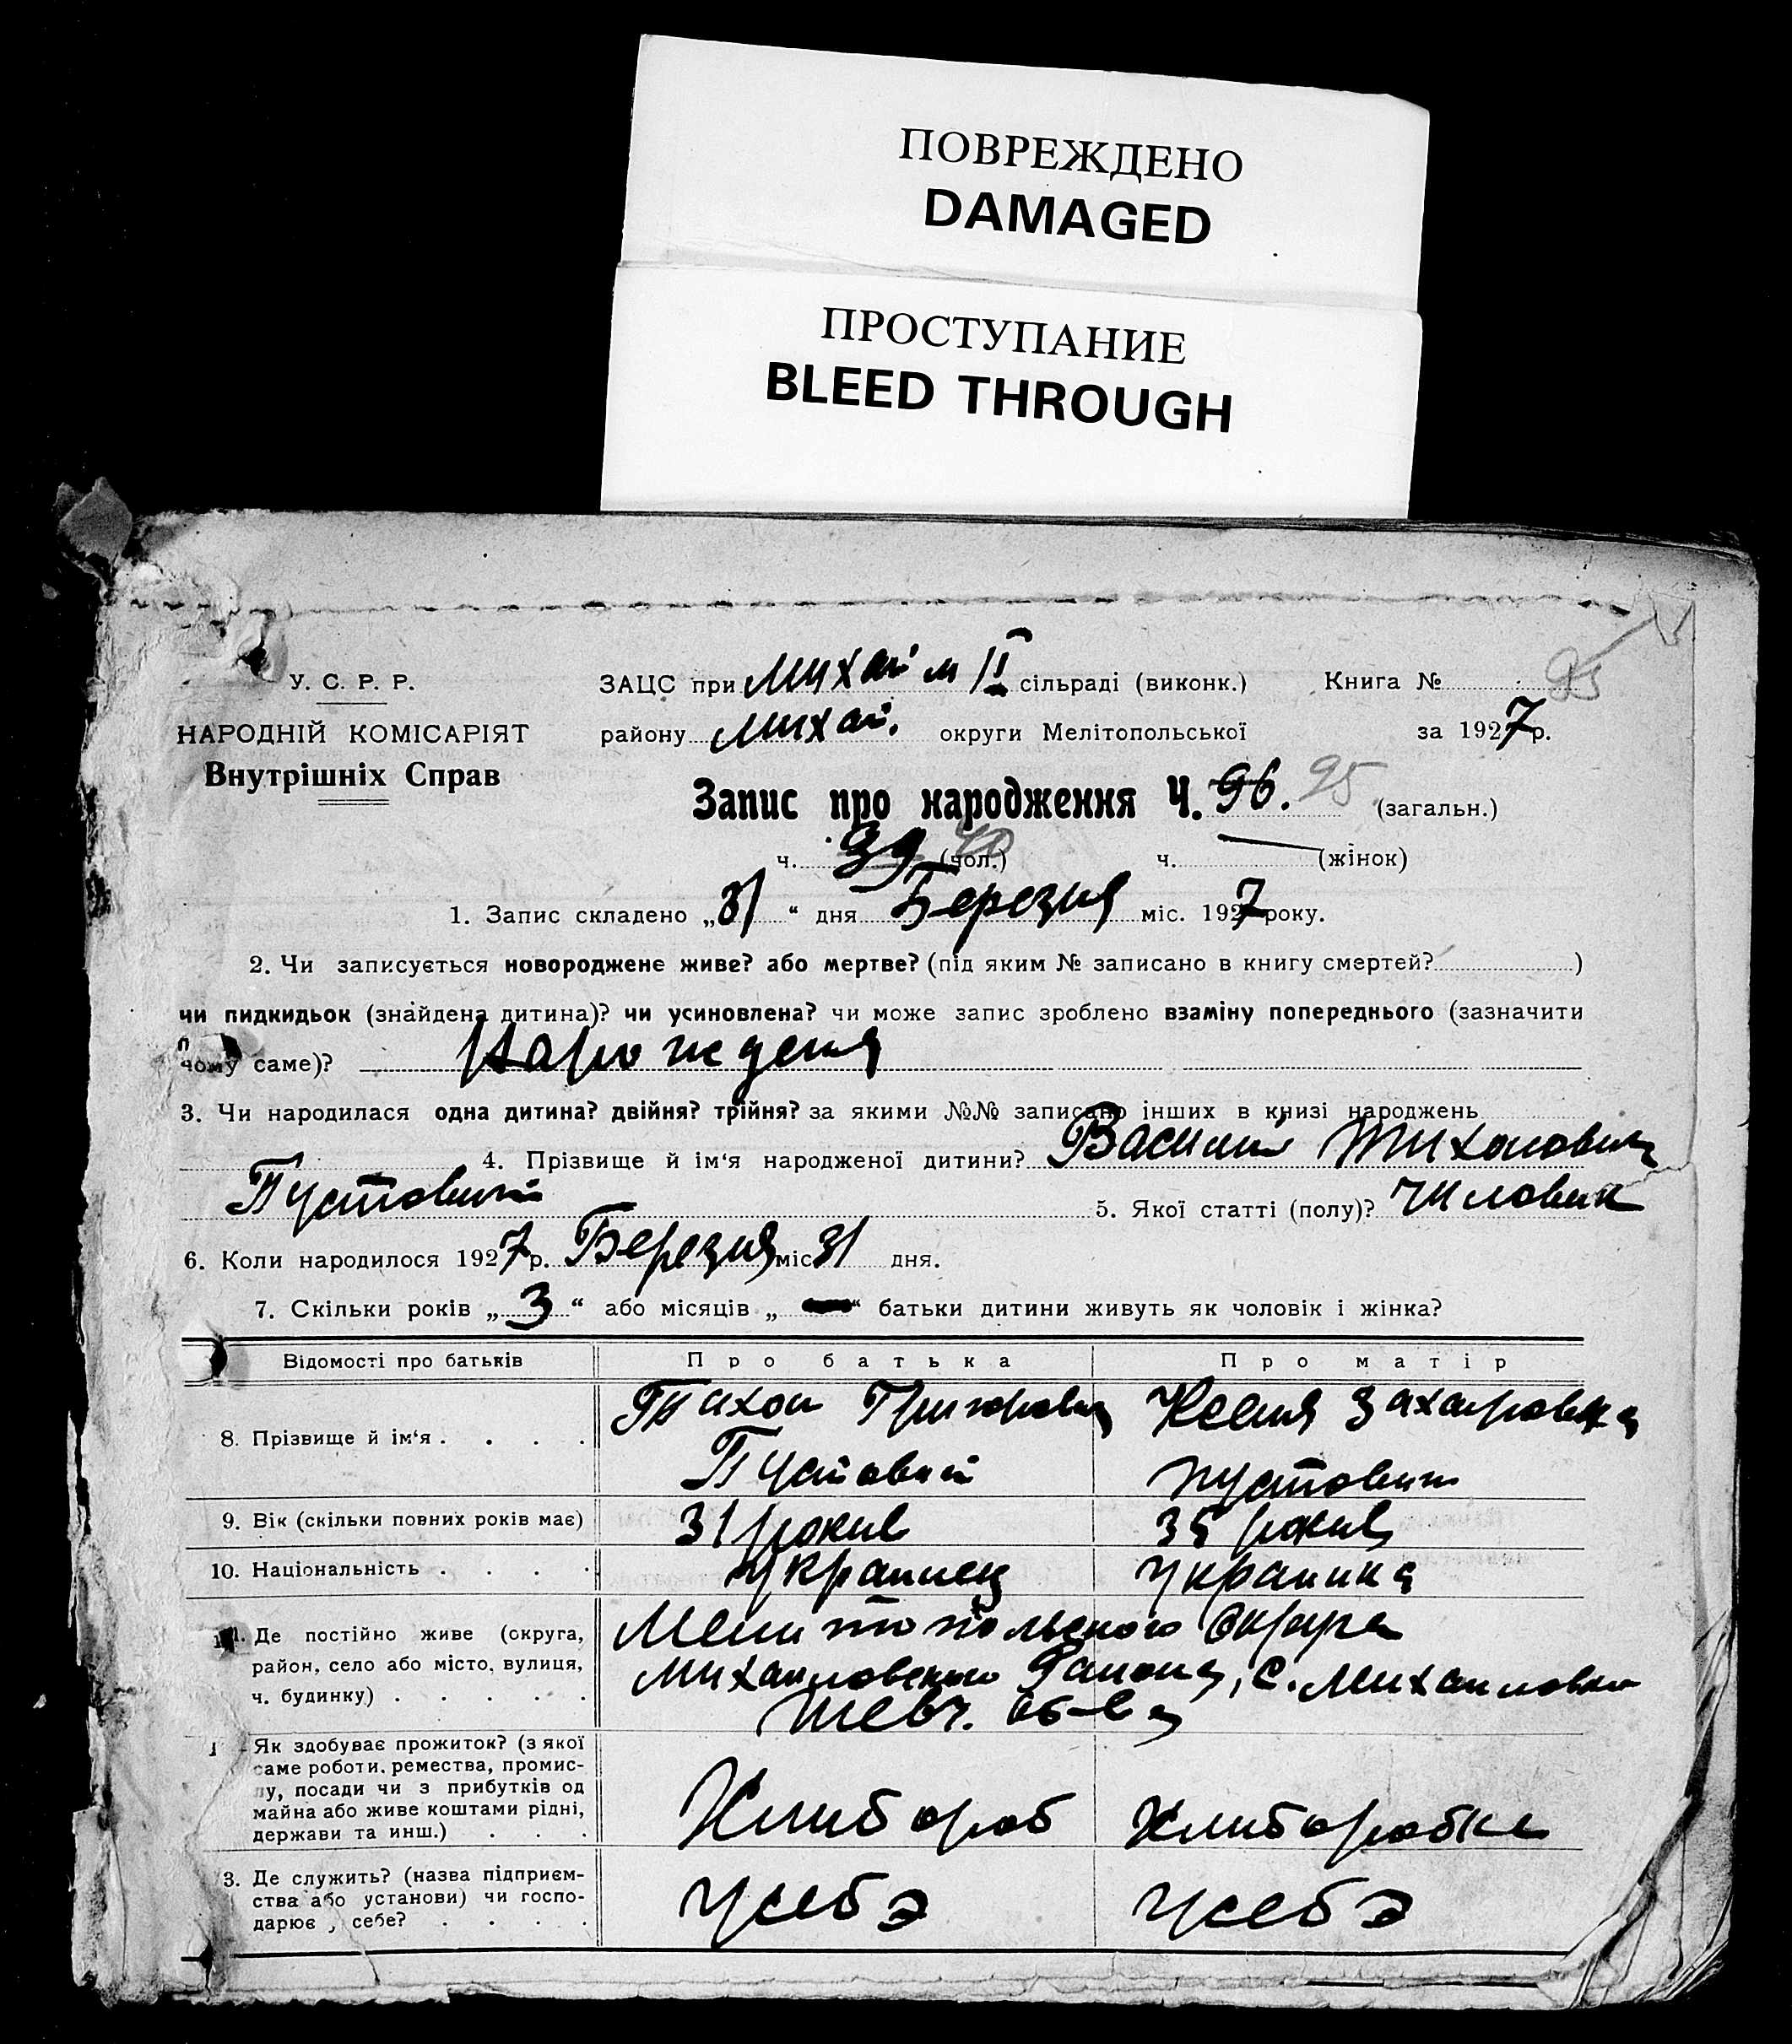 ПОВРЕЖДЕНО
DAMAGED
ПРОСТУПАНИЕ
BLEED THROUGH
У. С. Р. Р.
НАРОДНІЙ КОМІСАРІЯТ
Внутрішніх Справ
ЗАЦС при Михай м ІІ сільраді (виконк.) Книга № 95
району Михай. округи Мелітопольської за 1927 р.
Запис про народження Ч. 96. 95 (загальн.)
ч. 39 40 (чол.) ч. — (жінок)
1. Запис складено „31“ дня Березня міс. 1927 року.
2. Чи записується новороджене живе? або мертве? (під яким № записано в книгу смертей? )
чи пидкидьок (знайдена дитина)? чи усиновлена? чи може запис зроблено взаміну попереднього (зазначити
чому саме)? Нарождения
3. Чи народилася одна дитина? двійня? трійня? за якими №№ записано інших в книзі народжень
4. Прізвище й ім‘я народженої дитини? Василий Тихонович
Пустовий 5. Якої статті (полу)? Чиловик
6. Коли народилося 1927 р. Березня міс 31 дня.
7. Скільки років „3“ або місяців „—“ батьки дитини живуть як чоловік і жінка?
Відомості про батьків Про батька Про матір
8. Прізвище й ім‘я . . . . Тихон Григорович Ксения Захаровна
Пустовий Пустовит
9. Вік (скільки повних років має) 31 рокив 35 рокив
10. Національність . . . . Украинец Украинка
11. Де постійно живе (округа, Мелитопольского Округа
район, село або місто, вулиця, Михайловского Района, с. Михайловки
ч. будинку) . . . . . Шевч. об-ва
1 Як здобуває прожиток? (з якої
саме роботи, ремества, промис-
лу, посади чи з прибутків од
майна або живе коштами рідні, Хлибороб Хлиборобка
держави та инш.) . . .
3. Де служить? (назва підприєм-
ства або установи) чи госпо- Усебэ Усебэ
дарює у себе? . . . .